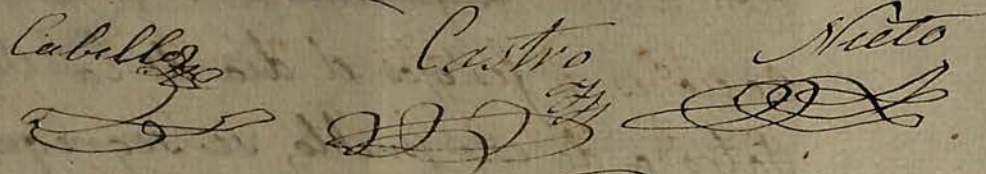 Cabello Castro Nieto